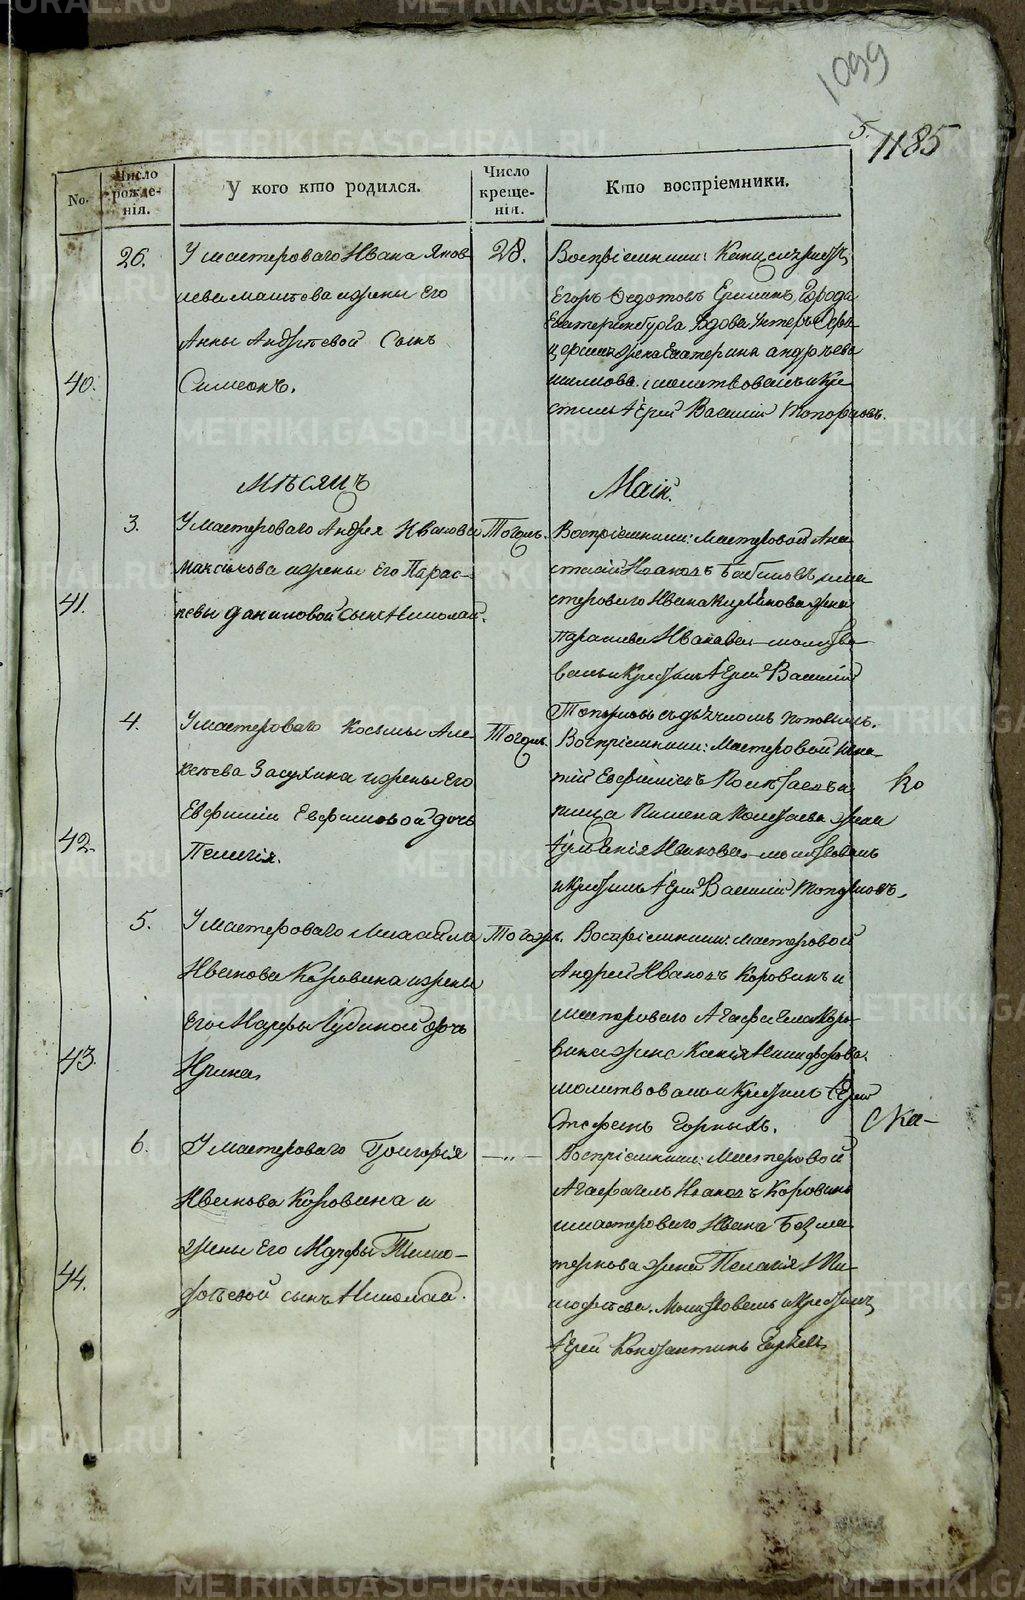 1099
5.
1185
No.
Число рожденія.
У кого кто родился.
Число крещенія.
Кто воспріемники.
40.
26.
У мастероваго Ивана Яков
жены его
Анны Андреевой Сынъ
Симеонъ.
28.
Воспріемники:
Егоръ Федотовъ Города
Екатеринбурга Вдова Унтеръ
Екатерина Андреева
молитвовалъ и кре
стилъ Іерей Василій Топорковъ.
Мѣсяцъ
Маій.
41.
3.
У мастероваго Андрея Иванова
Максимова жены его Парас-
кевы Даниловой сынъ Николай.
Тогожъ.
Воспріемники: мастеровой Ана
стасій Ивановъ Бабиновъ и ма
стероваго Ивана жена
Параскева Иванова молитво
валъ и крестилъ Іерей Василій
Топорковъ съ
42.
4.
У мастероваго Косьмы Але
ксѣева Засухина жены его
Евфиміи Евфимовой дочь
Пелагія.
Тогожъ.
Воспріемники: Мастеровой Игна
тій
Пимена жена
Іуліанія Иванова молитвовалъ
и крестилъ Іерей Василій Топорковъ.
43.
5.
У мастероваго Михаила
Иванова Коровина жены
его Марфы Іудиной дочь
Ирина
Тогожъ.
Воспріемники: мастеровой
Андрей Ивановъ Коровинъ и
мастероваго Агафагела Коро-
вина жена Ксенія Никифорова.
молитвовалъ и крестилъ Іерей
Стефанъ Горныхъ.
44.
6.
У мастероваго Григорія
Иванова Коровина и
жены его Марфы Тимо-
фѣевой сынъ Николай.
— „ —
Воспріемники: Мастеровой
Агафагелъ Ивановъ Коровинъ
и мастероваго Ивана Безма
тернова жена Пелагія Ти
мофѣева. Молитвовалъ и крестилъ
Іерей Константинъ
Ко
Ска-
METRIKI.GASO-URAL.RU